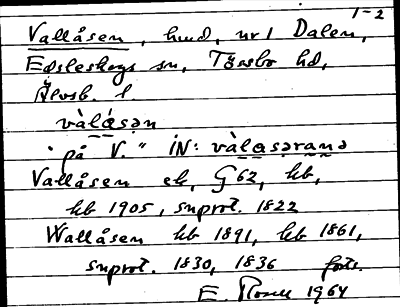 1-2
Vallåsen, hmd, nr 1 Dalen,
Edsleskogs sn, Tössbo hd,
Älvsb. l.
vàlåsən
"på V." iN: vàlasərana
Vallåsen ek, G 62, kb,
kb 1905, snprot. 1822
Wallåsen kb 1891, kb 1861,
snprot. 1830, 1836 forts.
E. 1964